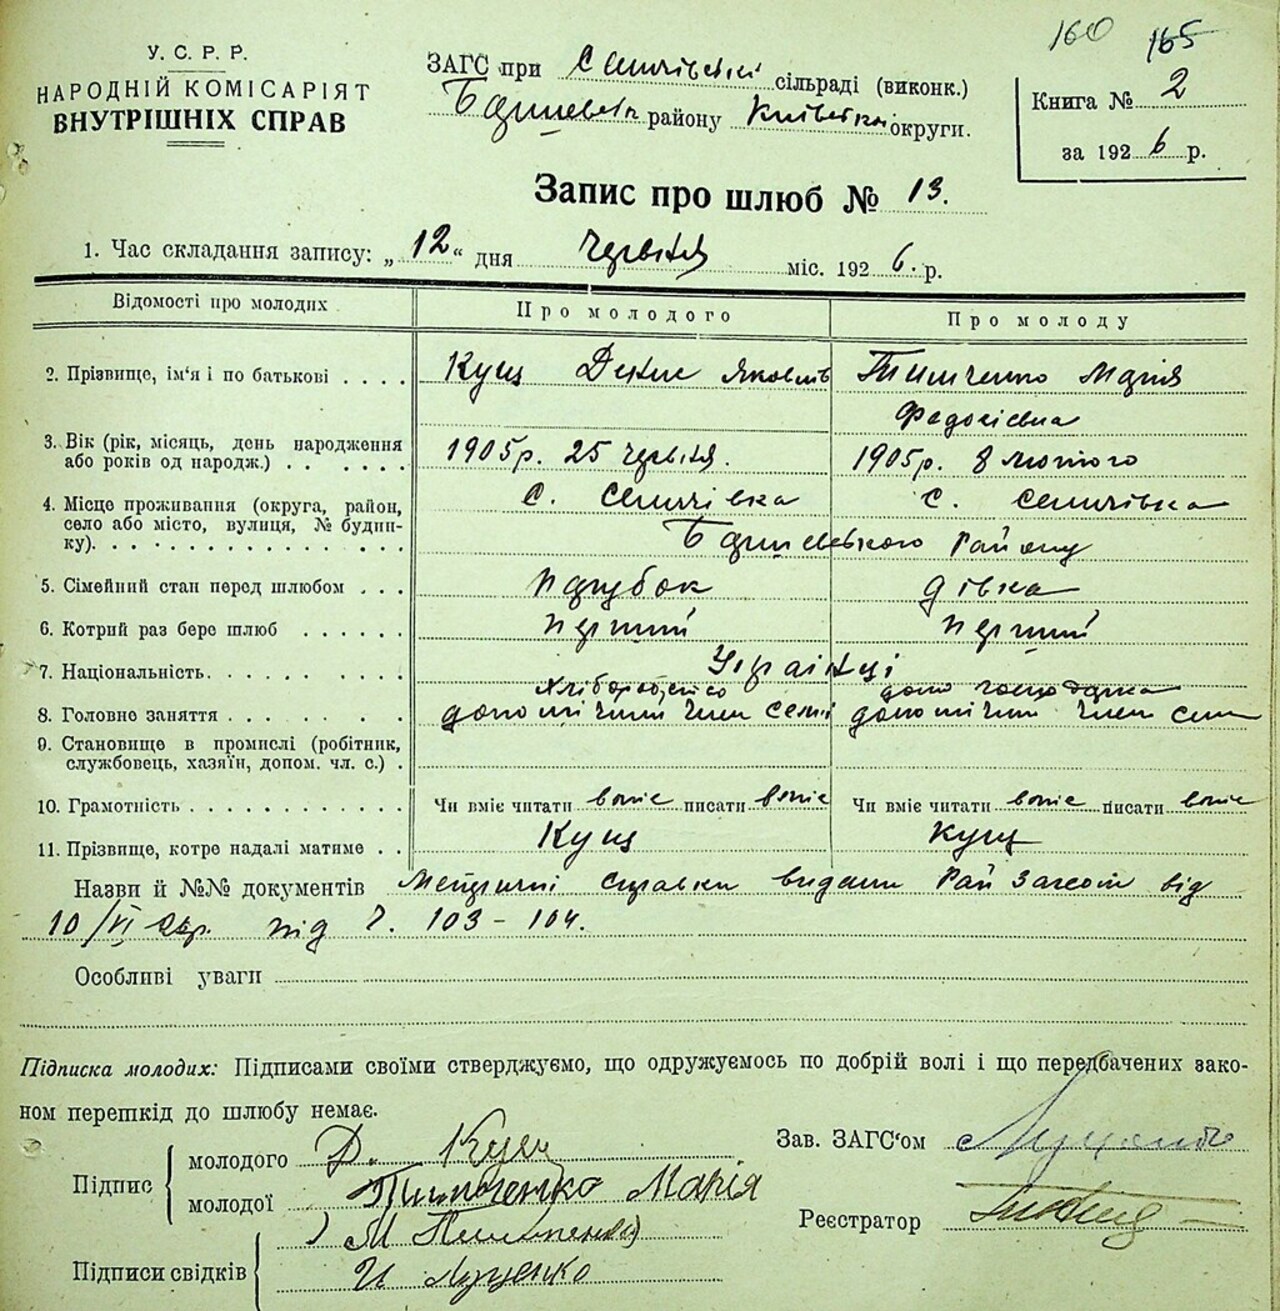 160 165
У. С. Р. Р.
НАРОДНІЙ КОМІСАРІЯТ
ВНУТРІШНІХ СПРАВ
ЗАГС при Семчівській сільраді (виконк.)
Баришевськ району Київськой округи.
Книга № 2
за 1926 р.
Запис про шлюб № 13.
1. Час складання запису: „12“ дня червня міс. 1926. р.
Відомості про молодих
Про молодого
Про молоду
2. Прізвище, ім‘я і по батькові . . . .
Кущ Денис Яковлів
Тимченко Марія
Федосіевна
3. Вік (рік, місяць, день народження
або років од народж.) . . . . . .
1905р. 25 червня.
1905р. 8 лютого
4. Місце проживання (округа, район,
село або місто, вулиця, № будин-
ку). . . . . . . . . . . . . . .
с. Семчівка
с. Семчівка
Баришевського Району
5. Сімейний стан перед шлюбом . . .
парубок
дівка
6. Котрий раз бере шлюб . . . . . .
перший
перший
7. Національність. . . . . . . . . .
Українці
8. Головне заняття . . . . . . . .
Хліборобство
допомічний член семї
дом господарка
допомічний член семї
9. Становище в промислі (робітник,
службовець, хазяїн, допом. чл. с.) .
10. Грамотність . . . . . . . . . . .
Чи вміє читати вміє писати вміє
Чи вміє читати вміє писати вміє
11. Прізвище, котре надалі матиме . .
Кущ
Кущ
Назви й №№ документів Метричні справки видани Рай Загсом від
10/VI під ч. 103 - 104.
Особливі уваги
Підписка молодих: Підписами своїми стверджуємо, що одружуємось по добрій волі і що передбачених зако-
ном перешкід до шлюбу немає.
Підпис
молодого Д. Кущ
молодої Тимченко Марія
Зав. ЗАГС‘ом
Реєстратор
Підписи свідків
М
И Луценко